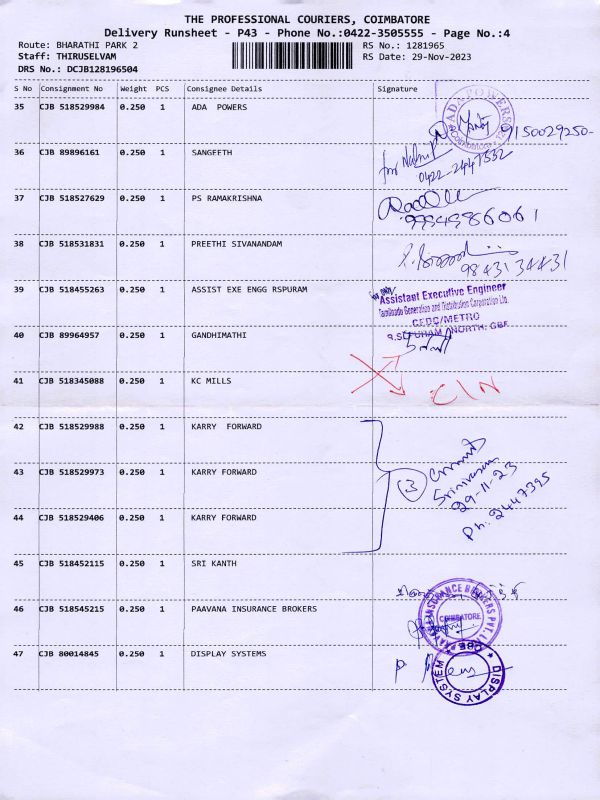 THE PROFESSIONAL COURIERS, COIMBATORE
Delivery Runsheet - P43 - Phone No.:0422-3505555 - Page No.:4
Route: BHARATHI PARK 2 RS No.: 1281965
Staff: THIRUSELVAM RS Date: 29-Nov-2023
DRS No.: DCJB128196504
S No Consignment No Weight PCS Consignee Details Signature
35 CJB 518529984 0.250 1 ADA POWERS
ADA POWERS Coimbatore
9150029250-
36 CJB 89896161 0.250 1 SANGEETH
for
0422-2447552
37 CJB 518527629 0.250 1 PS RAMAKRISHNA
9994986061
38 CJB 518531831 0.250 1 PREETHI SIVANANDAM
9843134431
39 CJB 518455263 0.250 1 ASSIST EXE ENGG RSPURAM
Assistant Executive Engineer
Tamilnadu Generation and Distribution Corporation Ltd.
CEDC/METRO
R.S.PURAM /NORTH, CBE
40 CJB 89964957 0.250 1 GANDHIMATHI
41 CJB 518345088 0.250 1 KC MILLS
C/N
42 CJB 518529988 0.250 1 KARRY FORWARD
43 CJB 518529973 0.250 1 KARRY FORWARD
3
Srinivasan
29-11-23
Ph: 2447395
44 CJB 518529406 0.250 1 KARRY FORWARD
45 CJB 518452115 0.250 1 SRI KANTH
46 CJB 518545215 0.250 1 PAAVANA INSURANCE BROKERS
PAAVANA INSURANCE BROKERS PVT. LTD.
COIMBATORE
47 CJB 80014845 0.250 1 DISPLAY SYSTEMS
DISPLAY SYSTEM * CBE *